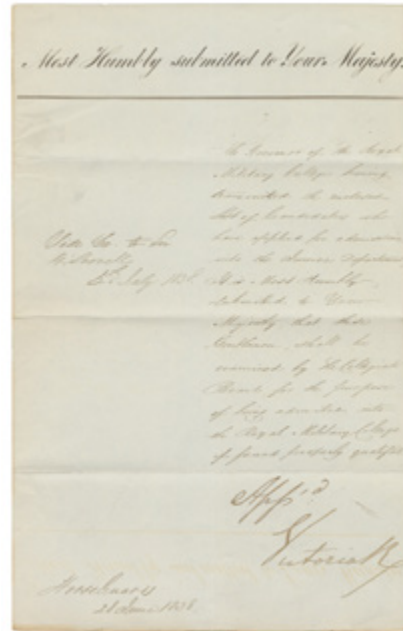 Most Humbly submitted to Your Majesty.
The Governor of the Royal
Military College having
transmitted the enclosed
list of Candidates who
have applied for admission
into the Senior Department
It is Most Humbly
submitted to Your
Majesty that these
Gentlemen shall be
examined by the Collegiate
Board for the purpose
of being admitted into
the Royal Military College
if found properly qualified
to Sir
July 1838
App'd
Victoria R
Horseguards
June 1838